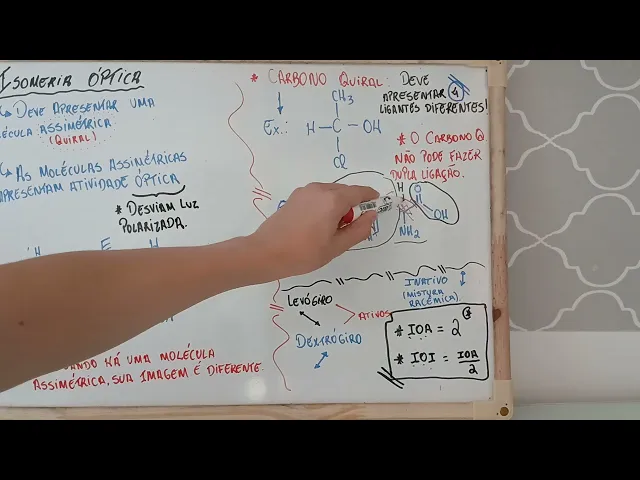 ISOMERIA ÓPTICA
↳ DEVE APRESENTAR UMA
ÉCULA ASSIMÉTRICA
(QUIRAL)
↳ AS MOLÉCULAS ASSIMÉTRICAS
APRESENTAM ATIVIDADE ÓPTICA
* DESVIAM LUZ
POLARIZADA.
H E H
HÁ UMA MOLÉCULA
ASSIMÉTRICA, SUA IMAGEM É DIFERENTE.
* CARBONO QUIRAL: DEVE
APRESENTAR 4
LIGANTES DIFERENTES!
CH3
EX.: H-C-OH
Cl
* O CARBONO Q
NÃO PODE FAZER
DUPLA LIGAÇÃO.
H O
OH
NH2
LEVÓGIRO
ATIVOS
DEXTRÓGIRO
INATIVO
(MISTURA
RACÊMICA)
* IOA = 2
* IOI = IOA/2